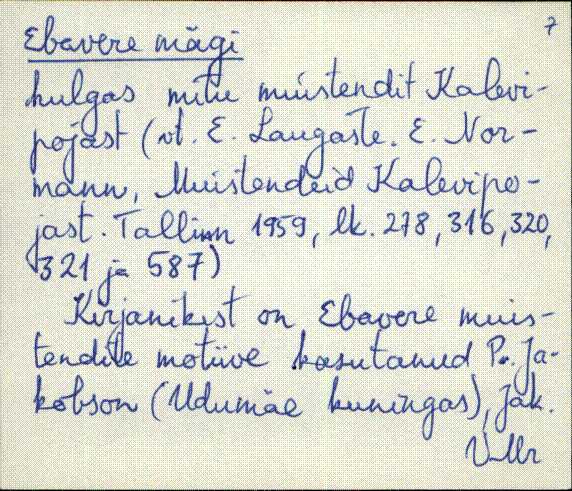 7
Ebavere mägi
hulgas mitu muistendit Kalevi-
pojast (vt. E. Laugaste. E. Nor-
mann, Muistendeid Kalevipo-
jast. Tallinn 1959, lk. 278, 316, 320,
321 ja 587)
Kirjanikest on Ebavere muis-
tendite motiive kasutanud P. Ja-
kobson (Udumäe kuningas), Jak.